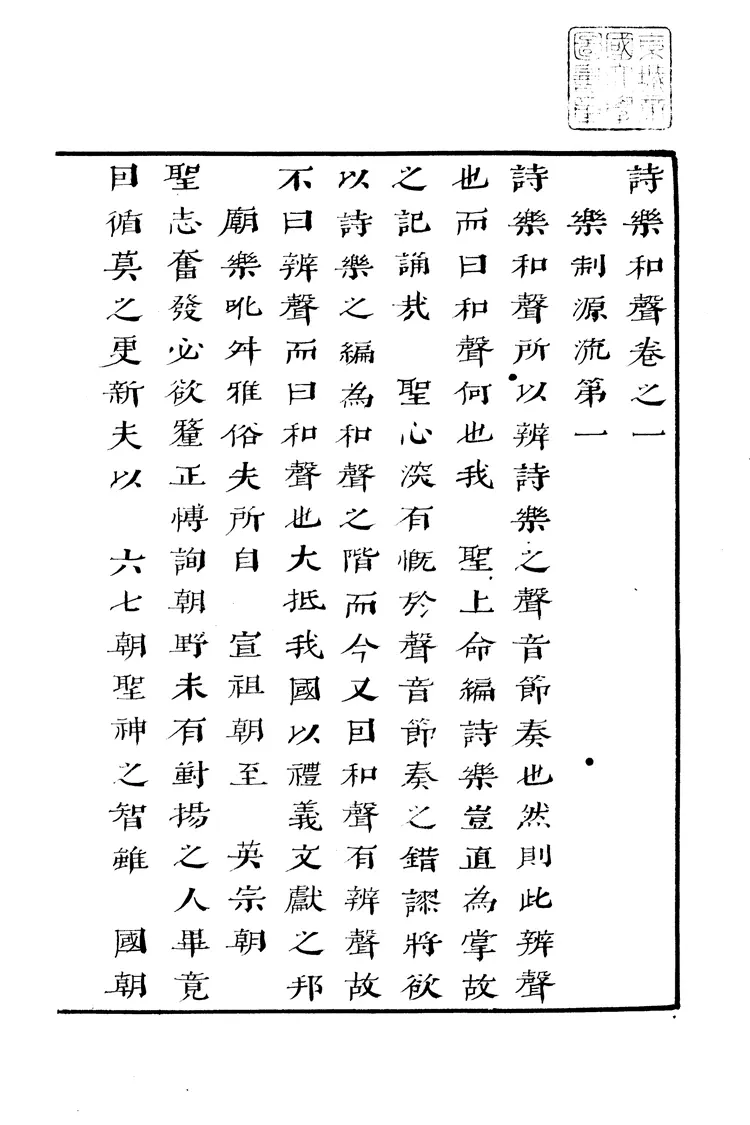 京城帝
國大學
圖書章
詩樂和聲卷之一
樂制源流第一
詩樂和聲所以辨詩樂之聲音節奏也然則此辨聲
也而曰和聲何也我 聖上命編詩樂豈直為掌故
之記誦㦲 聖心深有慨於聲音節奏之錯謬將欲
以詩樂之編為和聲之階而今又囙和聲有辨聲故
不曰辨聲而曰和聲也大抵我國以禮義文獻之邦
廟樂吪舛雅俗夫所自 宣祖朝至 英宗朝
聖志奮發必欲釐正博詢朝野未有對揚之人畢竟
囙循莫之更新夫以 六七朝聖神之智雖 國朝